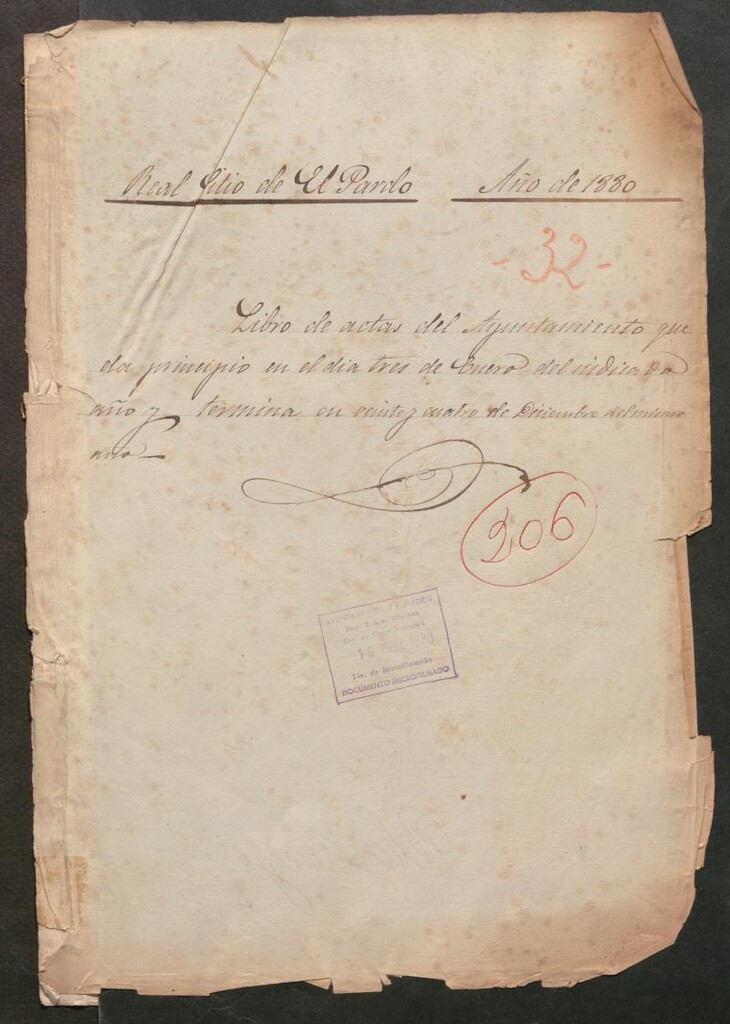 Real Sitio de El Pardo Año de 1880
- 32 -
Libro de actas del Ayuntamiento que
da principio en el dia tres de Enero del indicado
año y termina en veinte y cuatro de Diciembre del mismo
año
206
AYUNTAMIENTO DE MADRID
10 1980
Div. de Microfilmación
DOCUMENTO MICROFILMADO